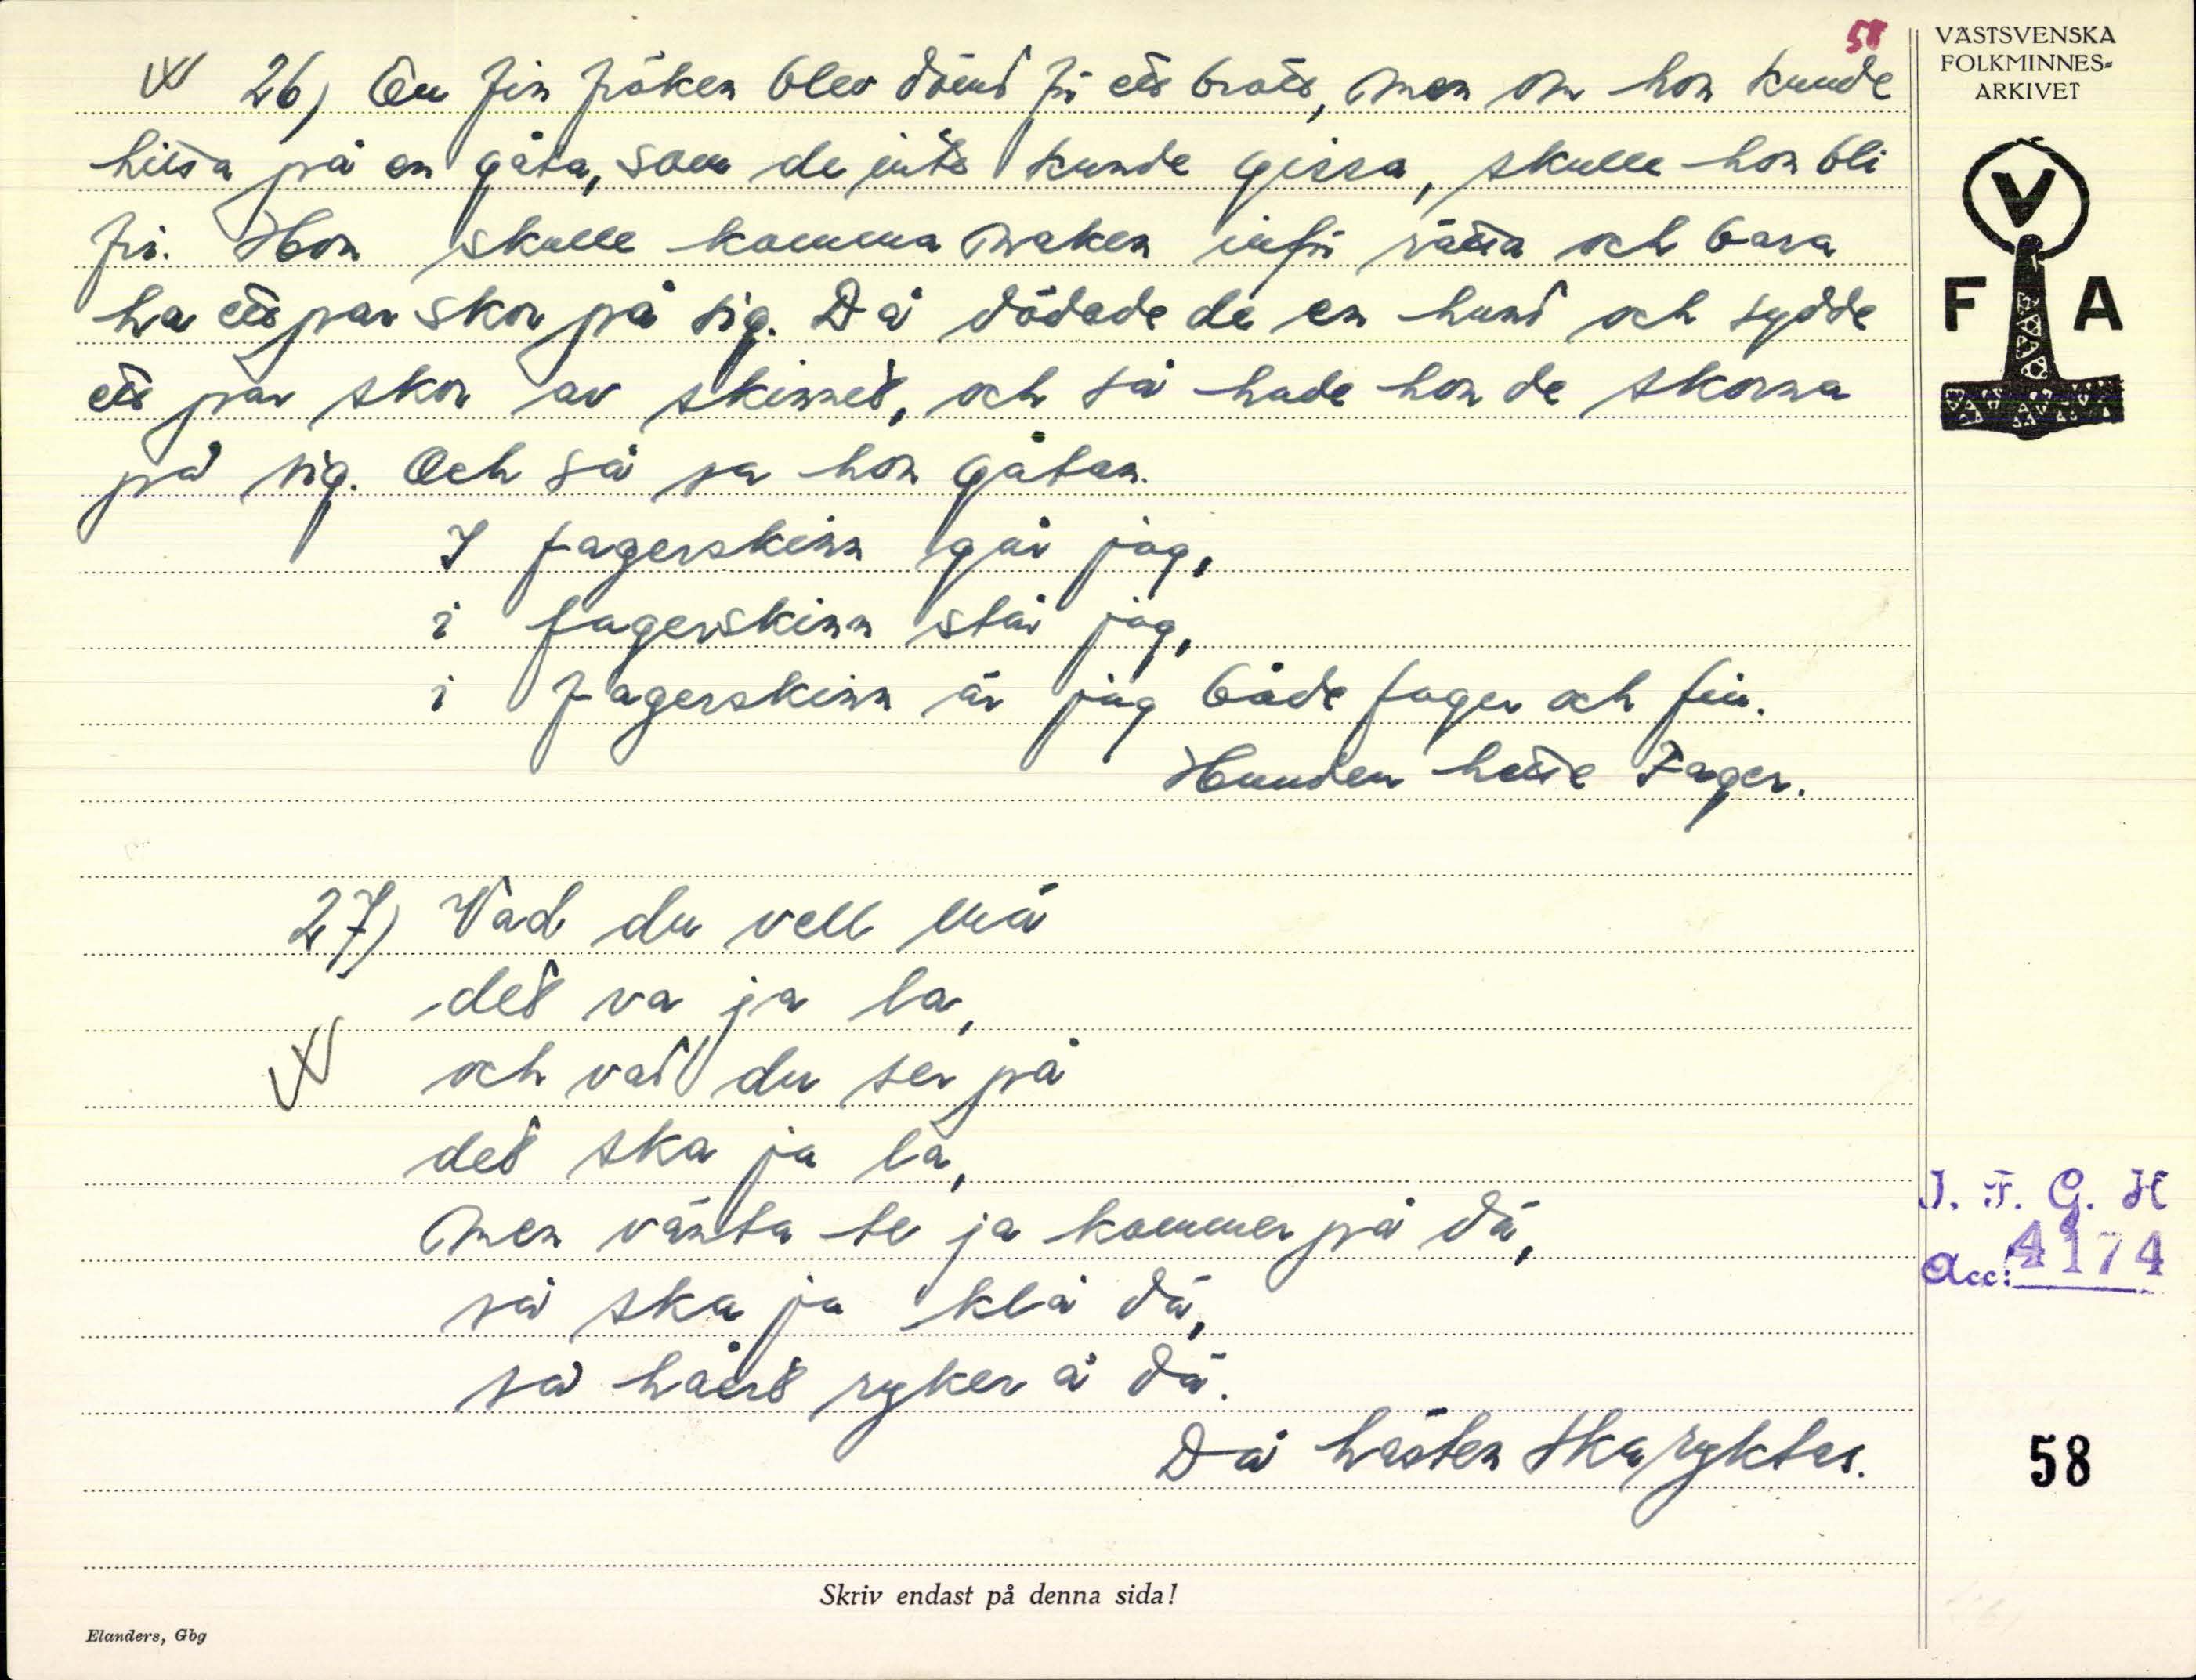 58
26) En fin fröken blev dömd för ett brott, men om hon kunde
hitta på en gåta, som de inte kunde gissa, skulle hon bli
fri. Hon skulle komma naken inför rätta och bara
ha ett par skor på sig. Då dödade de en hund och sydde
ett par skor av skinnet, och så hade hon de skorna
på sig. Och så sa hon gåtan.
I fagerskinn går jag,
i fagerskinn står jag,
i fagerskinn är jag både fager och fin.
Hunden hette Fager.
27) Vad du vell mä
det va ja la,
och vad du ser på
det ska ja la,
men vänta te ja kommer på dä,
så ska ja klå dä,
så håret ryker å dä.
Då hästen ska ryktas.
Skriv endast på denna sida!
Elanders, Gbg
VÄSTSVENSKA
FOLKMINNES-
ARKIVET
V
F A
I. F. G. H
Acc: 4174
58